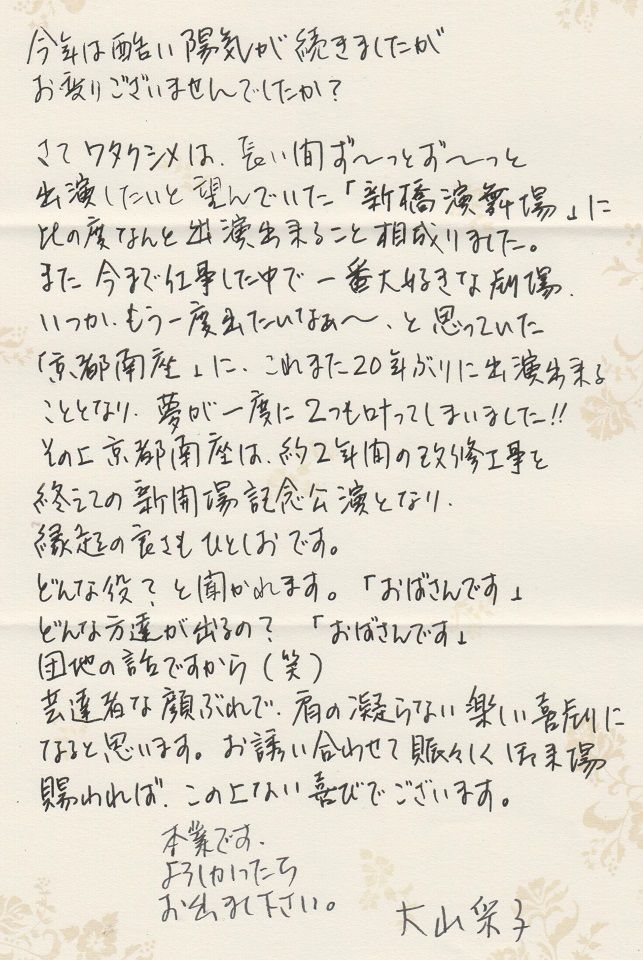 今年は酷い陽気が続きましたが
お変りございませんでしたか?
さてワタクシメは、長い間ず〜っとず〜っと
出演したいと望んでいた「新橋演舞場」に
此の度なんと出演出来ること相成りました。
また今まで仕事した中で一番大好きな劇場、
いつか、もう一度出たいなぁ〜、と思っていた
「京都南座」に、これまた20年ぶりに出演出来る
こととなり、夢が一度に2つも叶ってしまいました!!
その上京都南座は、約2年間の改修工事を
終えての新開場記念公演となり、
縁起の良さもひとしおです。
どんな役?と聞かれます。「おばさんです」
どんな方達が出るの?「おばさんです」
団地の話ですから(笑)
芸達者な顔ぶれで、肩の凝らない楽しい喜劇に
なると思います。お誘い合わせて賑々しくご来場
賜われば、この上ない喜びでございます。
本業です、
よろしかったら
お出まし下さい。
大山栄子